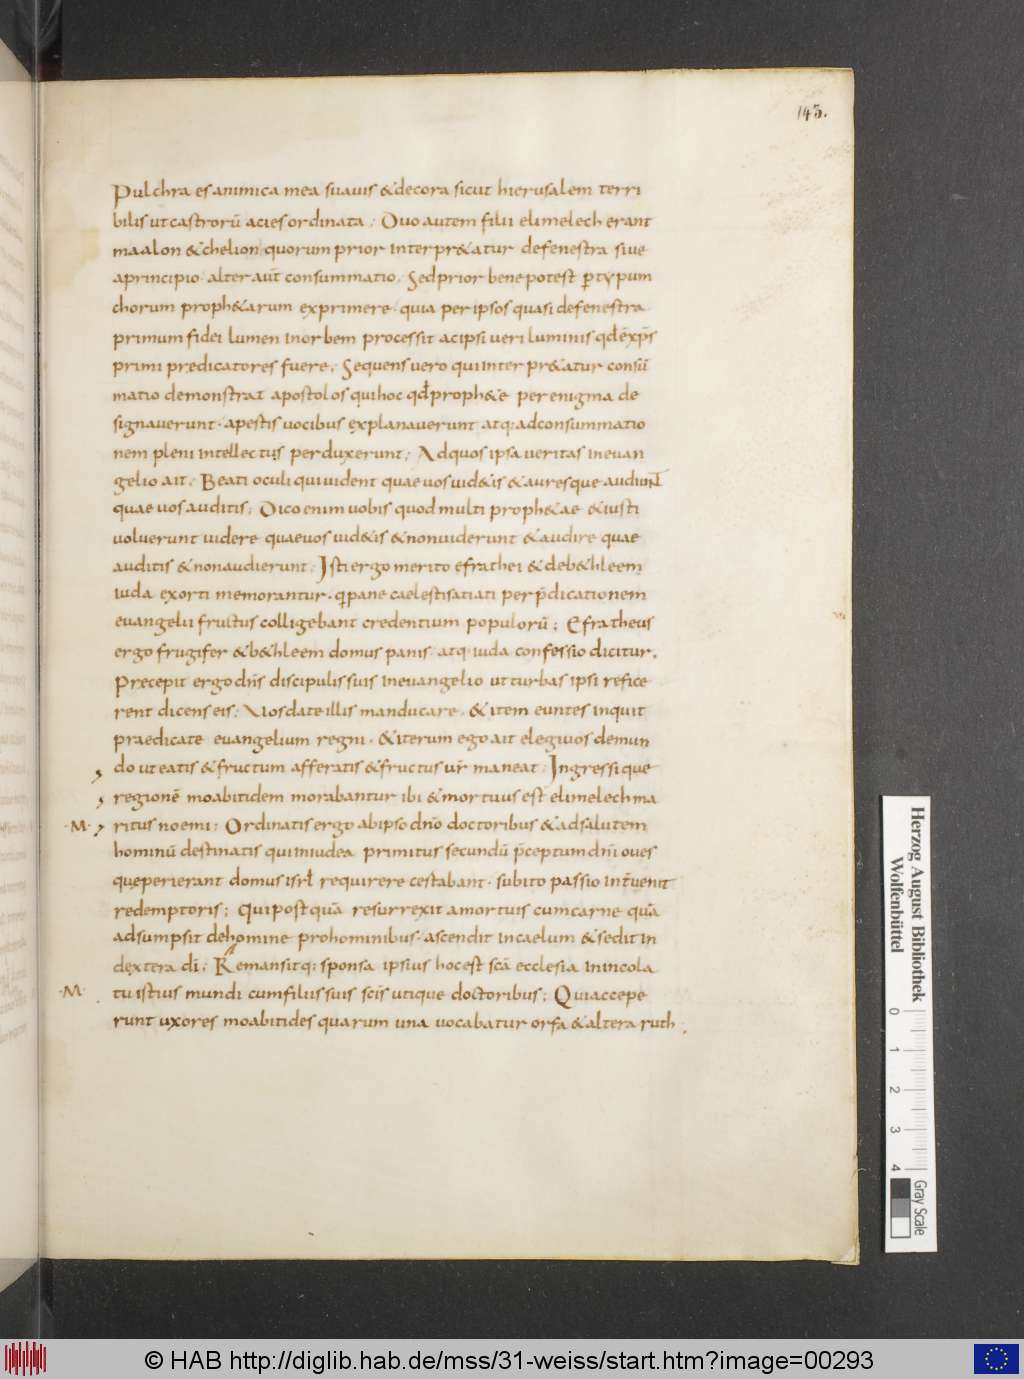 143.
Pulchra es amica mea suauis & decora sicut hierusalem terri
bilis ut castrorū acies ordinata; Duo autem filii elimelech erant
maalon & chelion quorum prior interpr&atur de fenestra siue
a principio alter aut̄ consummatio; Sed prior bene potest p̄ typum
chorum proph&arum exprimere, quia per ipsos quasi de fenestra
primum fidei lumen in orbem processit ac ipsi ueri luminis qđ ē xp̄s
primi predicatores fuere; Sequens uero qui interpr&atur consū
matio demonstrat apostolos qui hoc qđ proph&e per enigma de
signauerunt · apestis uocibus explanauerunt atq: ad consummatio
nem pleni intellectus perduxerunt; Ad quos ipsa ueritas in euan
gelio ait; Beati oculi qui uident quae uos uid&is & aures que audiunt
quae uos auditis; Dico enim uobis quod multi proph&ae & iusti
uoluerunt uidere quae uos uid&is & non uiderunt & audire quae
auditis & non audierunt; Isti ergo merito efrathei & de b&hleem
iuda exorti memorantur · q; pane caelesti satiati per p̄dicationem
euangelii fructus colligebant credentium populorū; Efratheus
ergo frugifer & b&hleem domus panis · atq· iuda confessio dicitur.
Precepit ergo dn̄s discipulis suis in euangelio ut turbas ipsi refice
rent dicens eis; Vos date illis manducare, & item euntes inquit
praedicate euangelium regni · & iterum ego ait elegi uos de mun
do ut eatis & fructum afferatis & fructus ur̄ maneat; Ingressique
regionē moabitidem morabantur ibi & mortuus est elimelech ma
·M· ritus noemi; Ordinatis ergo ab ipso dn̄o doctoribus & ad salutem
hominū destinatis qui in iudea primitus secundū p̄ceptum dn̄i oues
que perierant domus isrl̄ requirere certabant · subito passio int̄uenit
redemptoris; Qui postquā resurrexit a mortuis cum carne quā
adsumpsit de homine pro hominibus · ascendit in caelum & sedit in
dextera dī; Remansitq: sponsa ipsius hoc est scā ecclesia in incola
·M· tu istius mundi cum filiis suis scīs utique doctoribus; Qui accepe
runt uxores moabitides quarum una uocabatur orfa & altera ruth;
Herzog August Bibliothek
Wolfenbüttel
0 1 2 3 4
Gray Scale
© HAB http://diglib.hab.de/mss/31-weiss/start.htm?image=00293